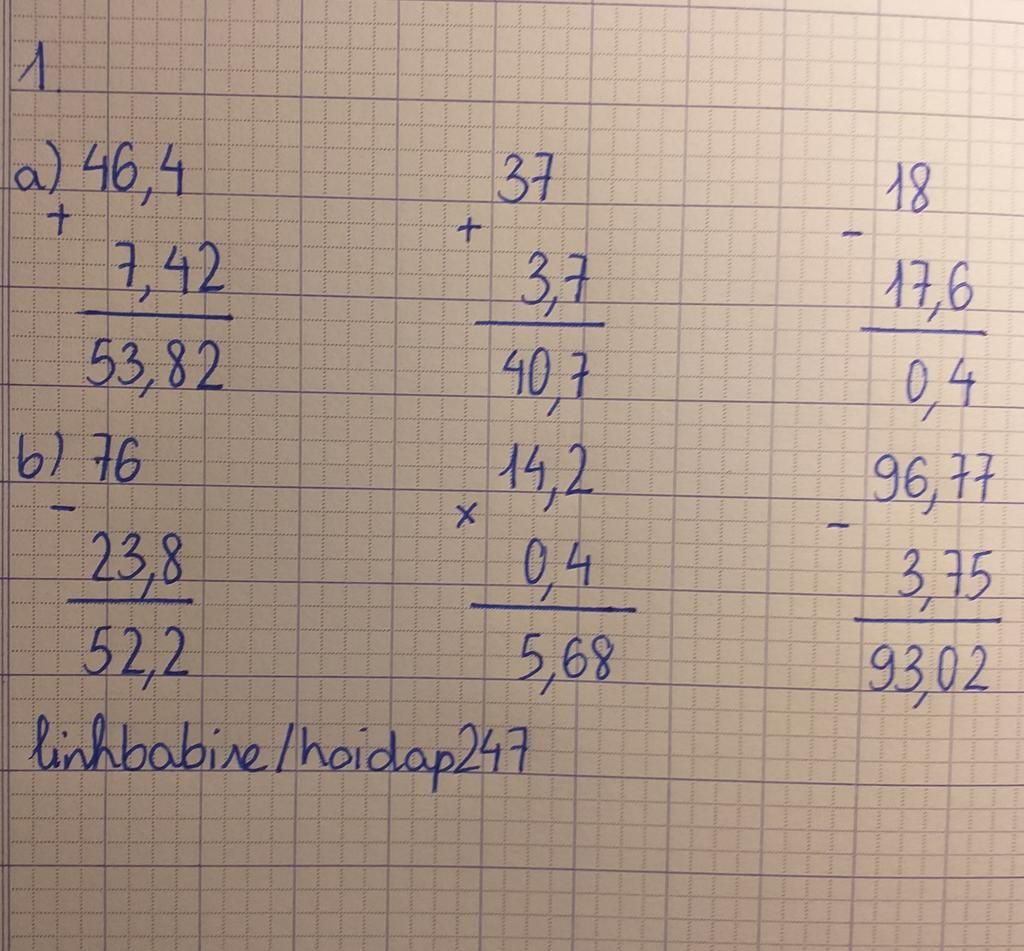 1.
a) 46,4 37 18
+ + -
7,42 3,7 17,6
53,82 40,7 0,4
b) 76 14,2 96,77
- x -
23,8 0,4 3,75
52,2 5,68 93,02
linhbabine/hoidap247